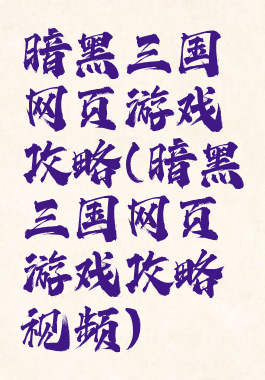 暗黑三国
网页游戏
攻略(暗黑
三国网页
游戏攻略
视频)